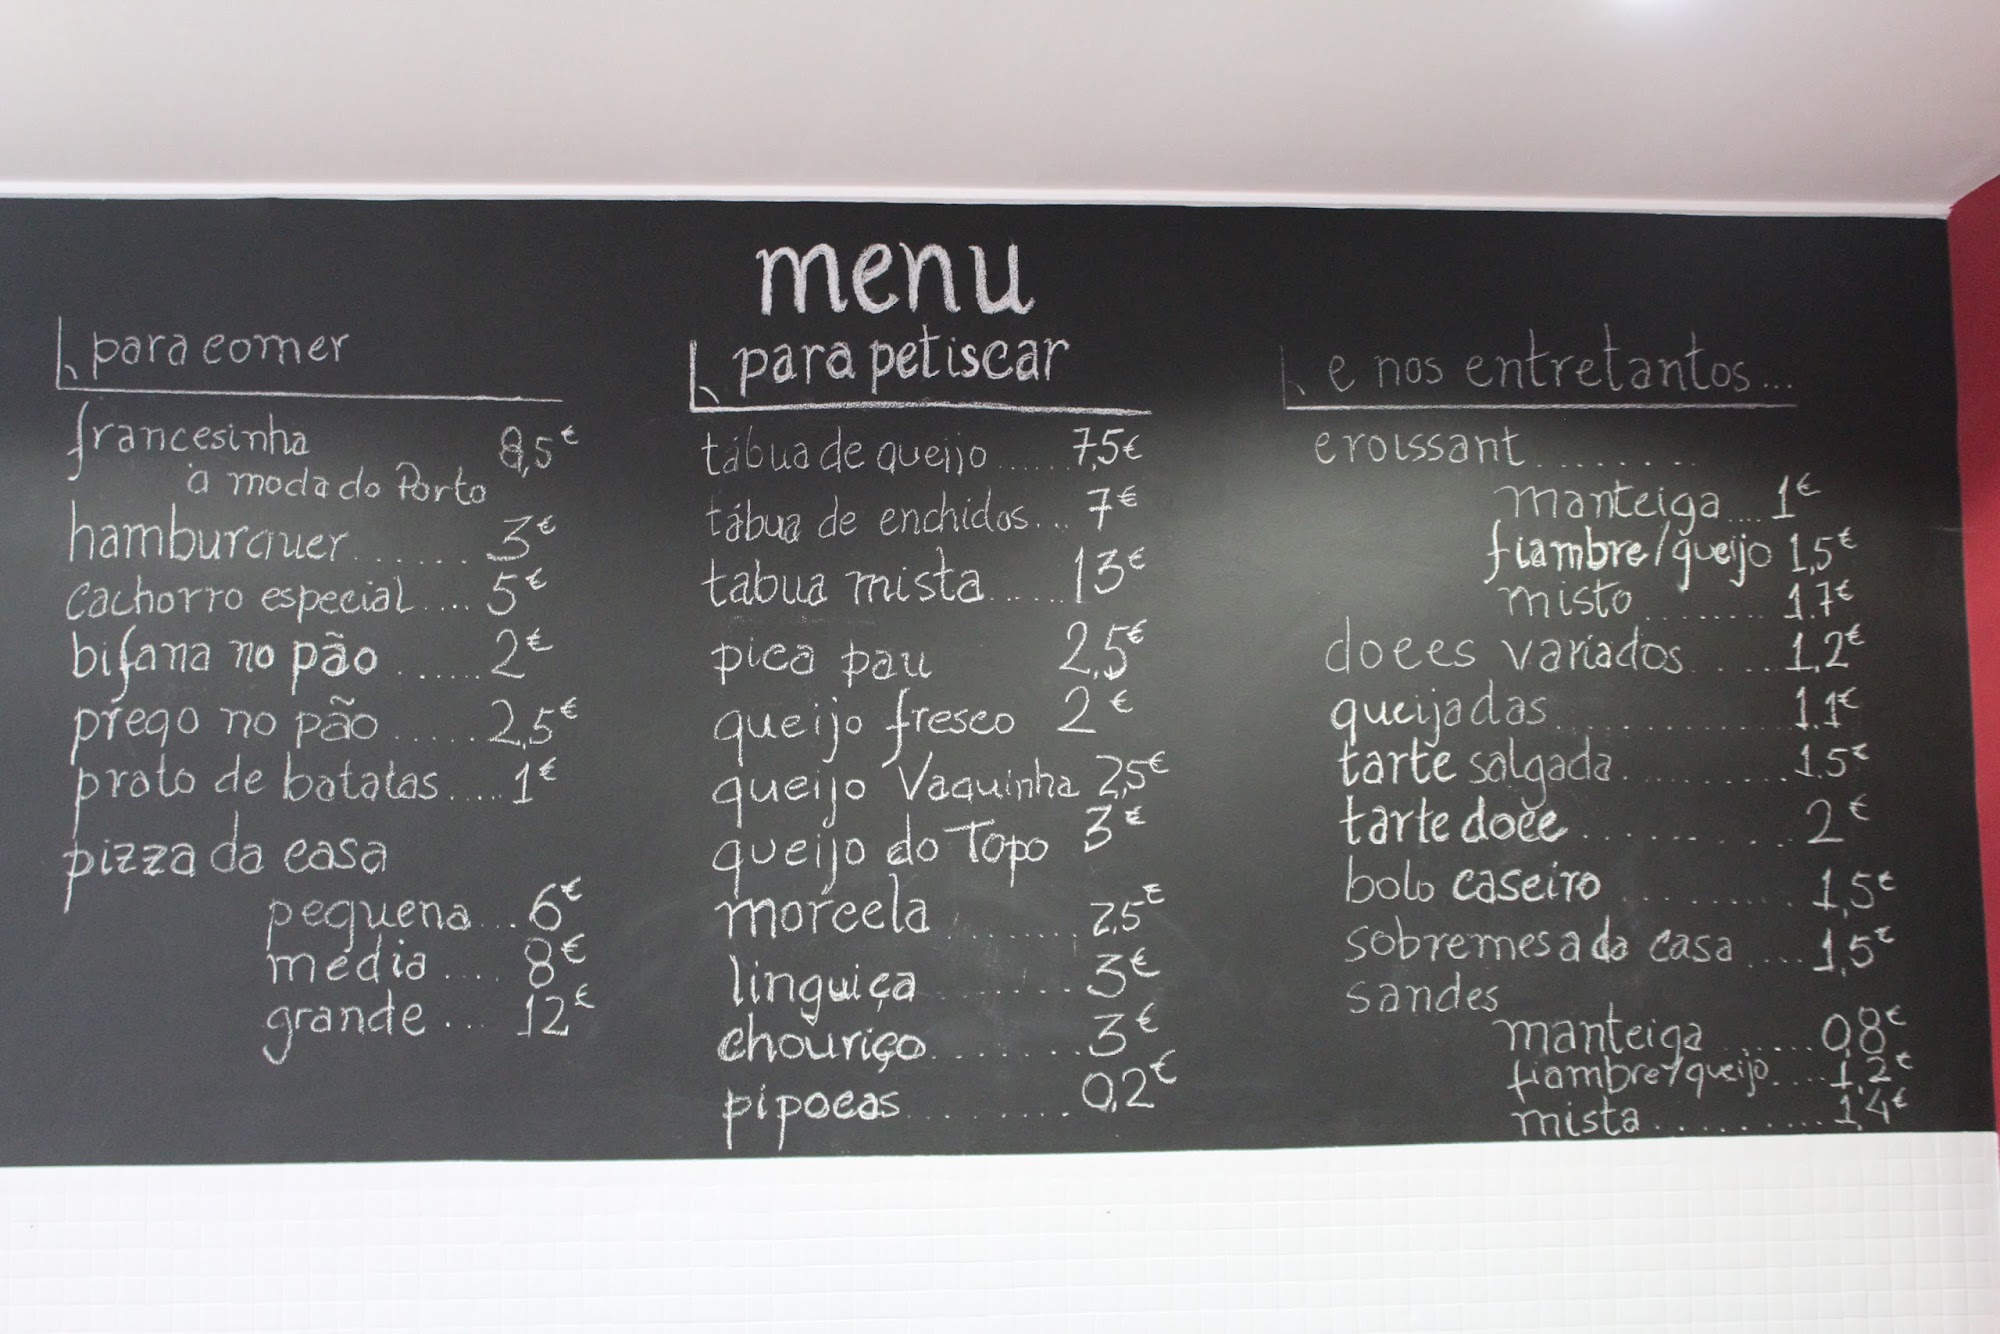 menu
para comer
francesinha 8,5€
à moda do Porto
hamburguer....... 3€
cachorro especial.... 5€
bifana no pão...... 2€
prego no pão...... 2,5€
prato de batatas..... 1€
pizza da casa
pequena... 6€
media.... 8€
grande... 12€
para petiscar
tábua de queijo...... 7,5€
tábua de enchidos... 7€
tabua mista...... 13€
pica pau 2,5€
queijo fresco 2€
queijo Vaquinha 2,5€
queijo do Topo 3€
morcela ......... 2,5€
linguiça ........ 3€
chouriço......... 3€
pipocas.......... 0,2€
e nos entretantos...
croissant.........
manteiga.... 1€
fiambre/queijo 1,5€
misto......... 1.7€
doces variados..... 1,2€
queijadas.............. 1.1€
tarte salgada........... 1.5€
tarte doce............ 2€
bolo caseiro........... 1,5€
sobremesa da casa..... 1,5€
sandes
manteiga....... 0,8€
fiambre/queijo..... 1,2€
mista........... 1,4€